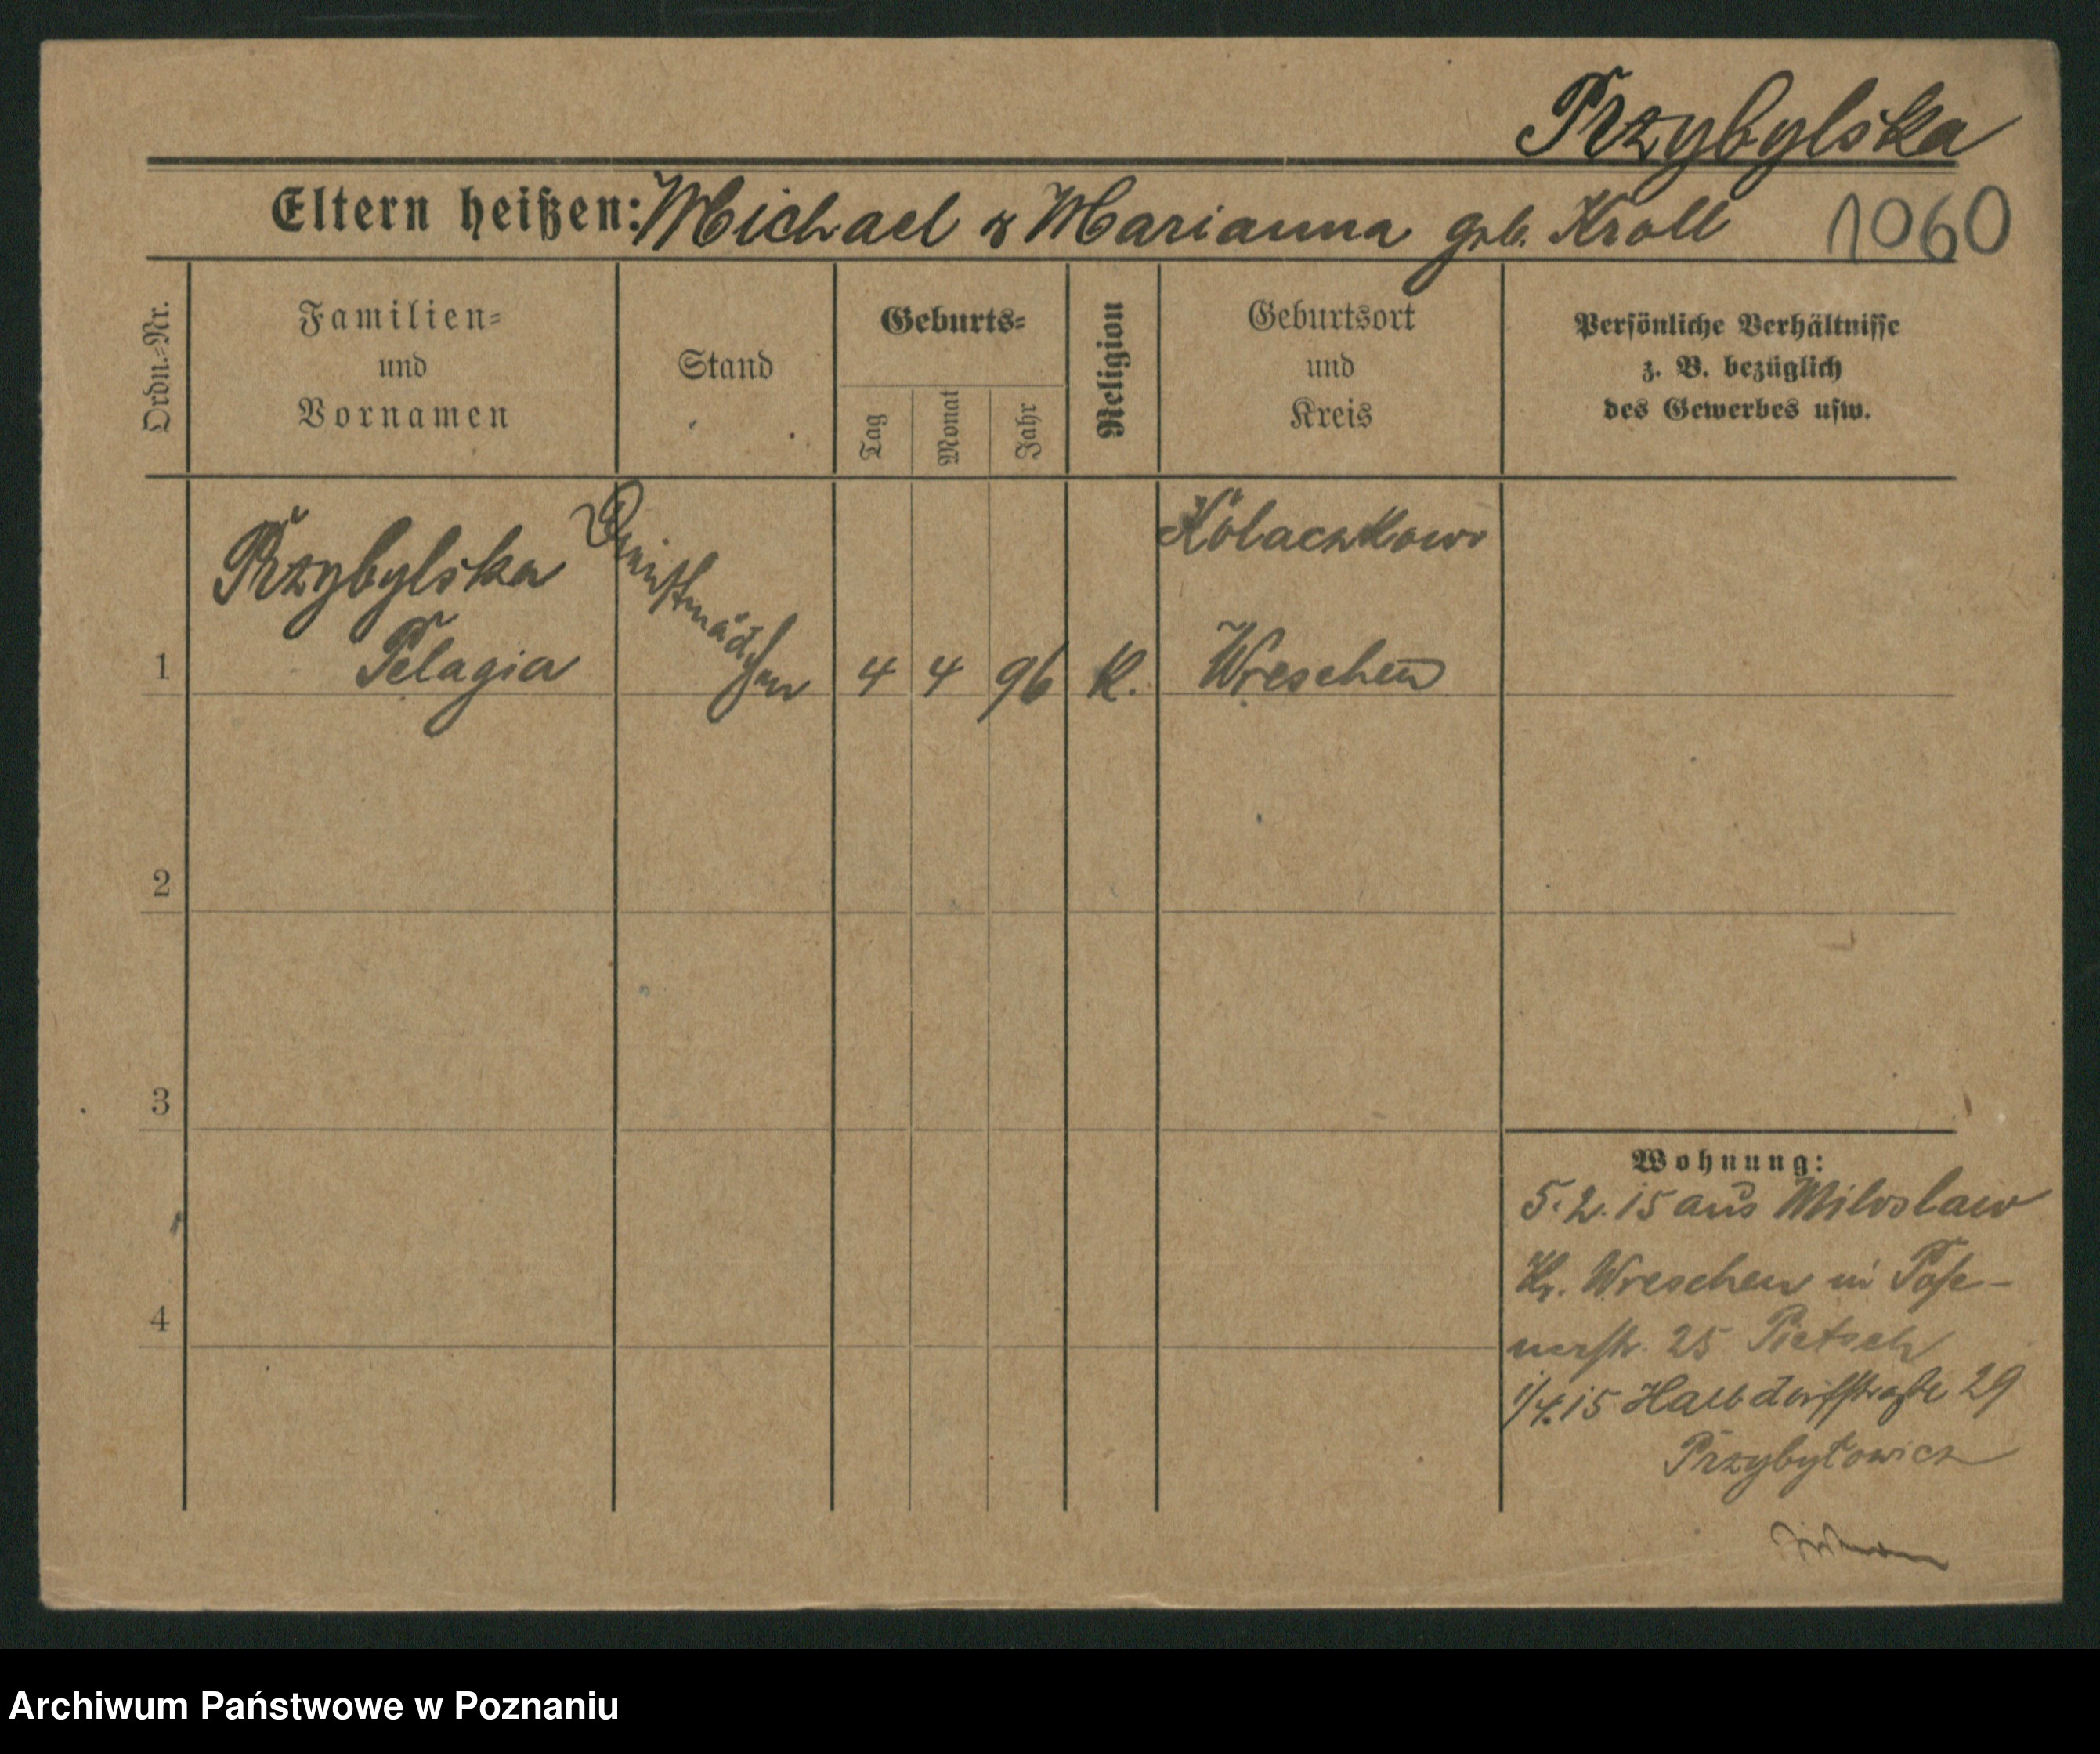 Przybylska
Eltern heißen: Michael & Marianna geb. Kroll 1060
Ordn.-Nr.
Familien-
und
Vornamen
Stand
Geburts-
Tag
Monat
Jahr
Religion
Geburtsort
und
Kreis
Persönliche Verhältnisse
z. B. bezüglich
des Gewerbes usw.
Przybylska
Pelagia
Dienstmädchen
1
4 4 96 K.
Kolaczkowo
Wreschen
2
3
4
Wohnung:
5.2.15 aus Miloslaw
Kr. Wreschen in Pose-
nerstr. 25 Pietsch
1/4.15 Halbdorfstraße 29
Przybylowicz
Archiwum Państwowe w Poznaniu